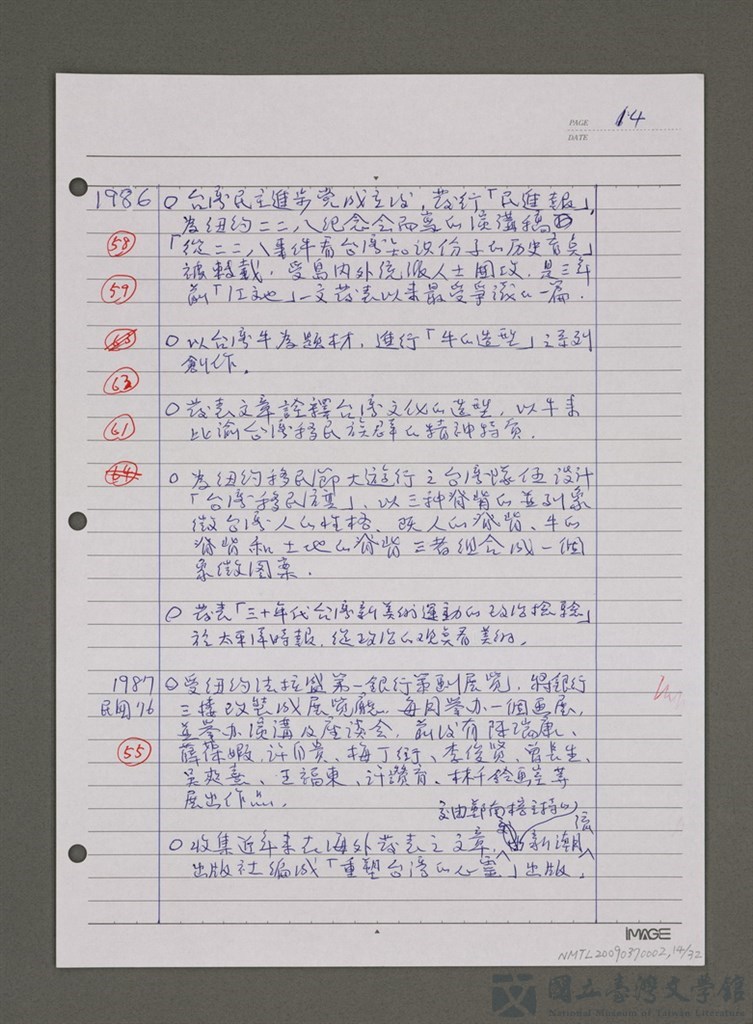 PAGE 14
DATE
1986 ○台湾民主進步党成立後，發行「民進報」，
為紐約二二八紀念会而寫的演講稿
58 「從二二八事件看台湾知识份子的历史盲点」
被轉載，受島內外統派人士围攻，是三年
59 前「江文也」一文發表以來最受爭議的一篇．
63 ○以台湾牛為題材，進行「牛的造型」之系列
創作．
63
○發表文章詮釋台湾文化的造型，以牛來
61 比喻台湾移民族群的精神特質．
64 ○為紐約移民節大遊行之台湾隊伍設計
「台湾移民宝」，以三种脊背的並列象
徵台湾人的性格，既人的脊背、牛的
脊背和土地的脊背三者組合成一個
象徵图案．
○發表「三十年代台湾新美術運動的政治捡驗」
於太平洋時報，從政治的观点看美術．
1987 ○受紐約法拉盛第一銀行策劃展览，將銀行
民国76 三楼改裝成展览廳，每月举办一個画展，
並举办演講及座谈会，前後有陳瑞康、
55 薛保瑕、許自贵、梅丁衍、李俊賢、曾長生、
吳炎熹、王福東、許讚育、林千鈴画室等
展出作品．
交由鄭南榕主持的
○收集近年來在海外發表之文章，新潮流
出版社編成「重塑台湾的心靈」出版．
IMAGE
NMTL20090370002,14/32
國立臺灣文學館
National Museum of Taiwan Literature